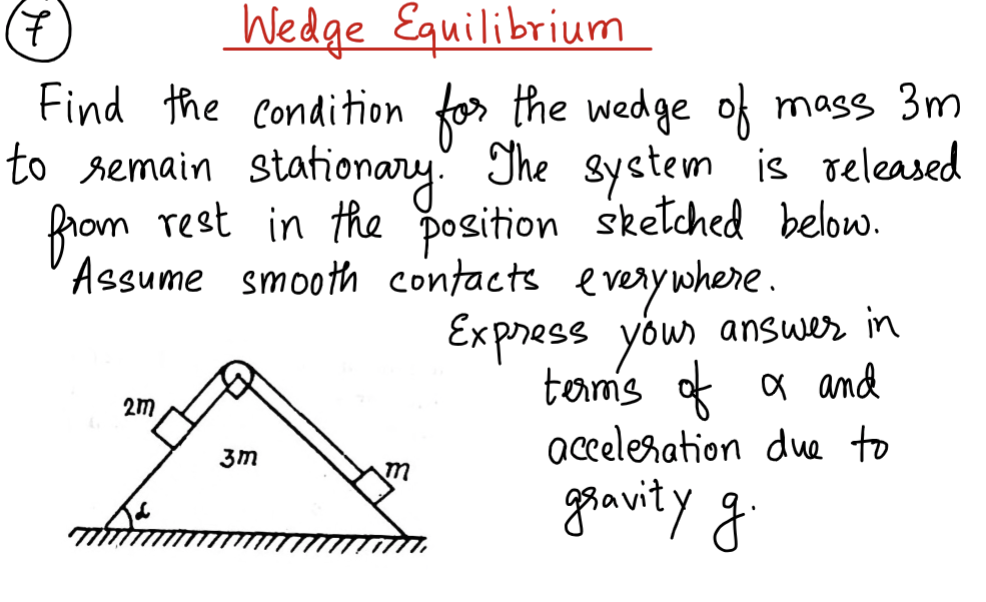 7
Wedge Equilibrium
Find the condition for the wedge of mass 3m
to remain stationary. The system is released
from rest in the position sketched below.
Assume smooth contacts everywhere.
Express your answer in
terms of α and
acceleration due to
gravity g.
2m
3m
m
α